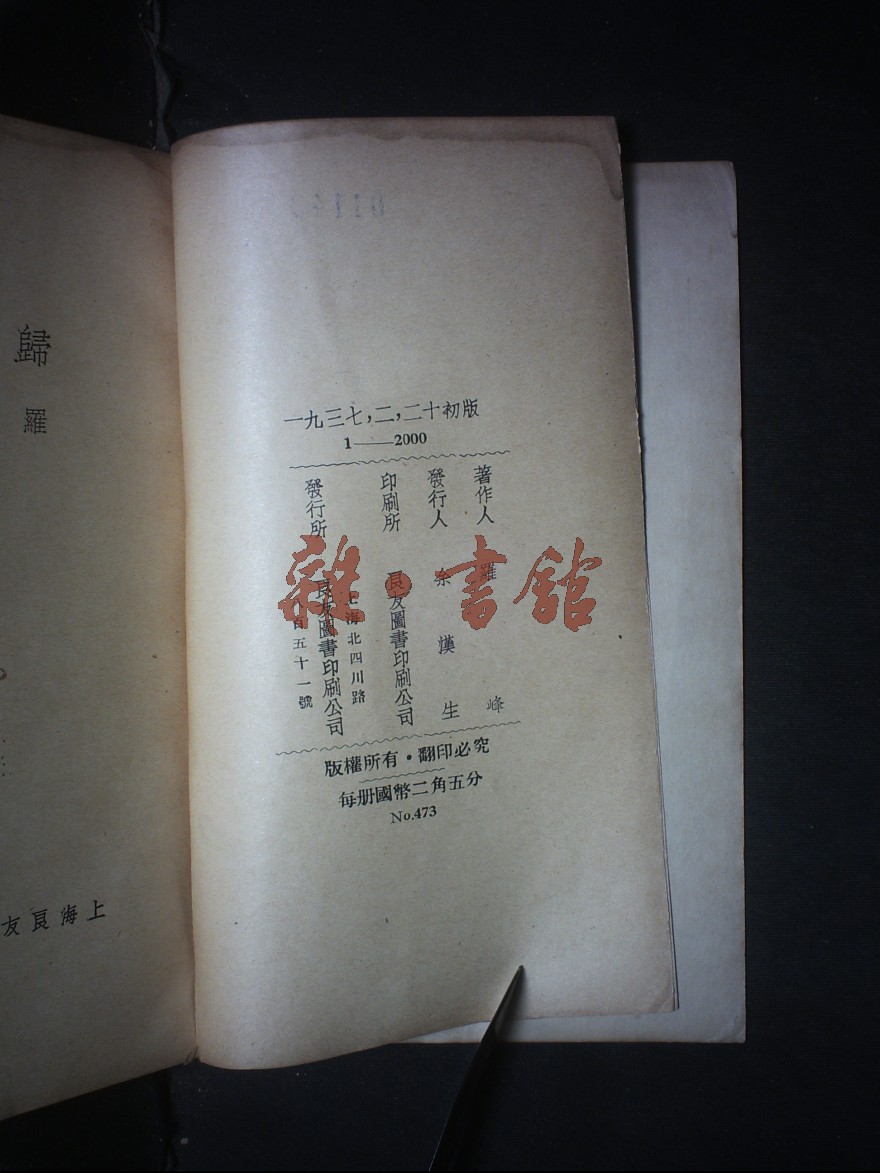 一九三七，二，二十初版
1——2000
著作人 羅 峰
發行人 余漢生
印刷所 良友圖書印刷公司
上海北四川路
發行所 良友圖書印刷公司
八百五十一號
版權所有・翻印必究
每册國幣二角五分
No.473
歸
羅
上海良友
雜・書館